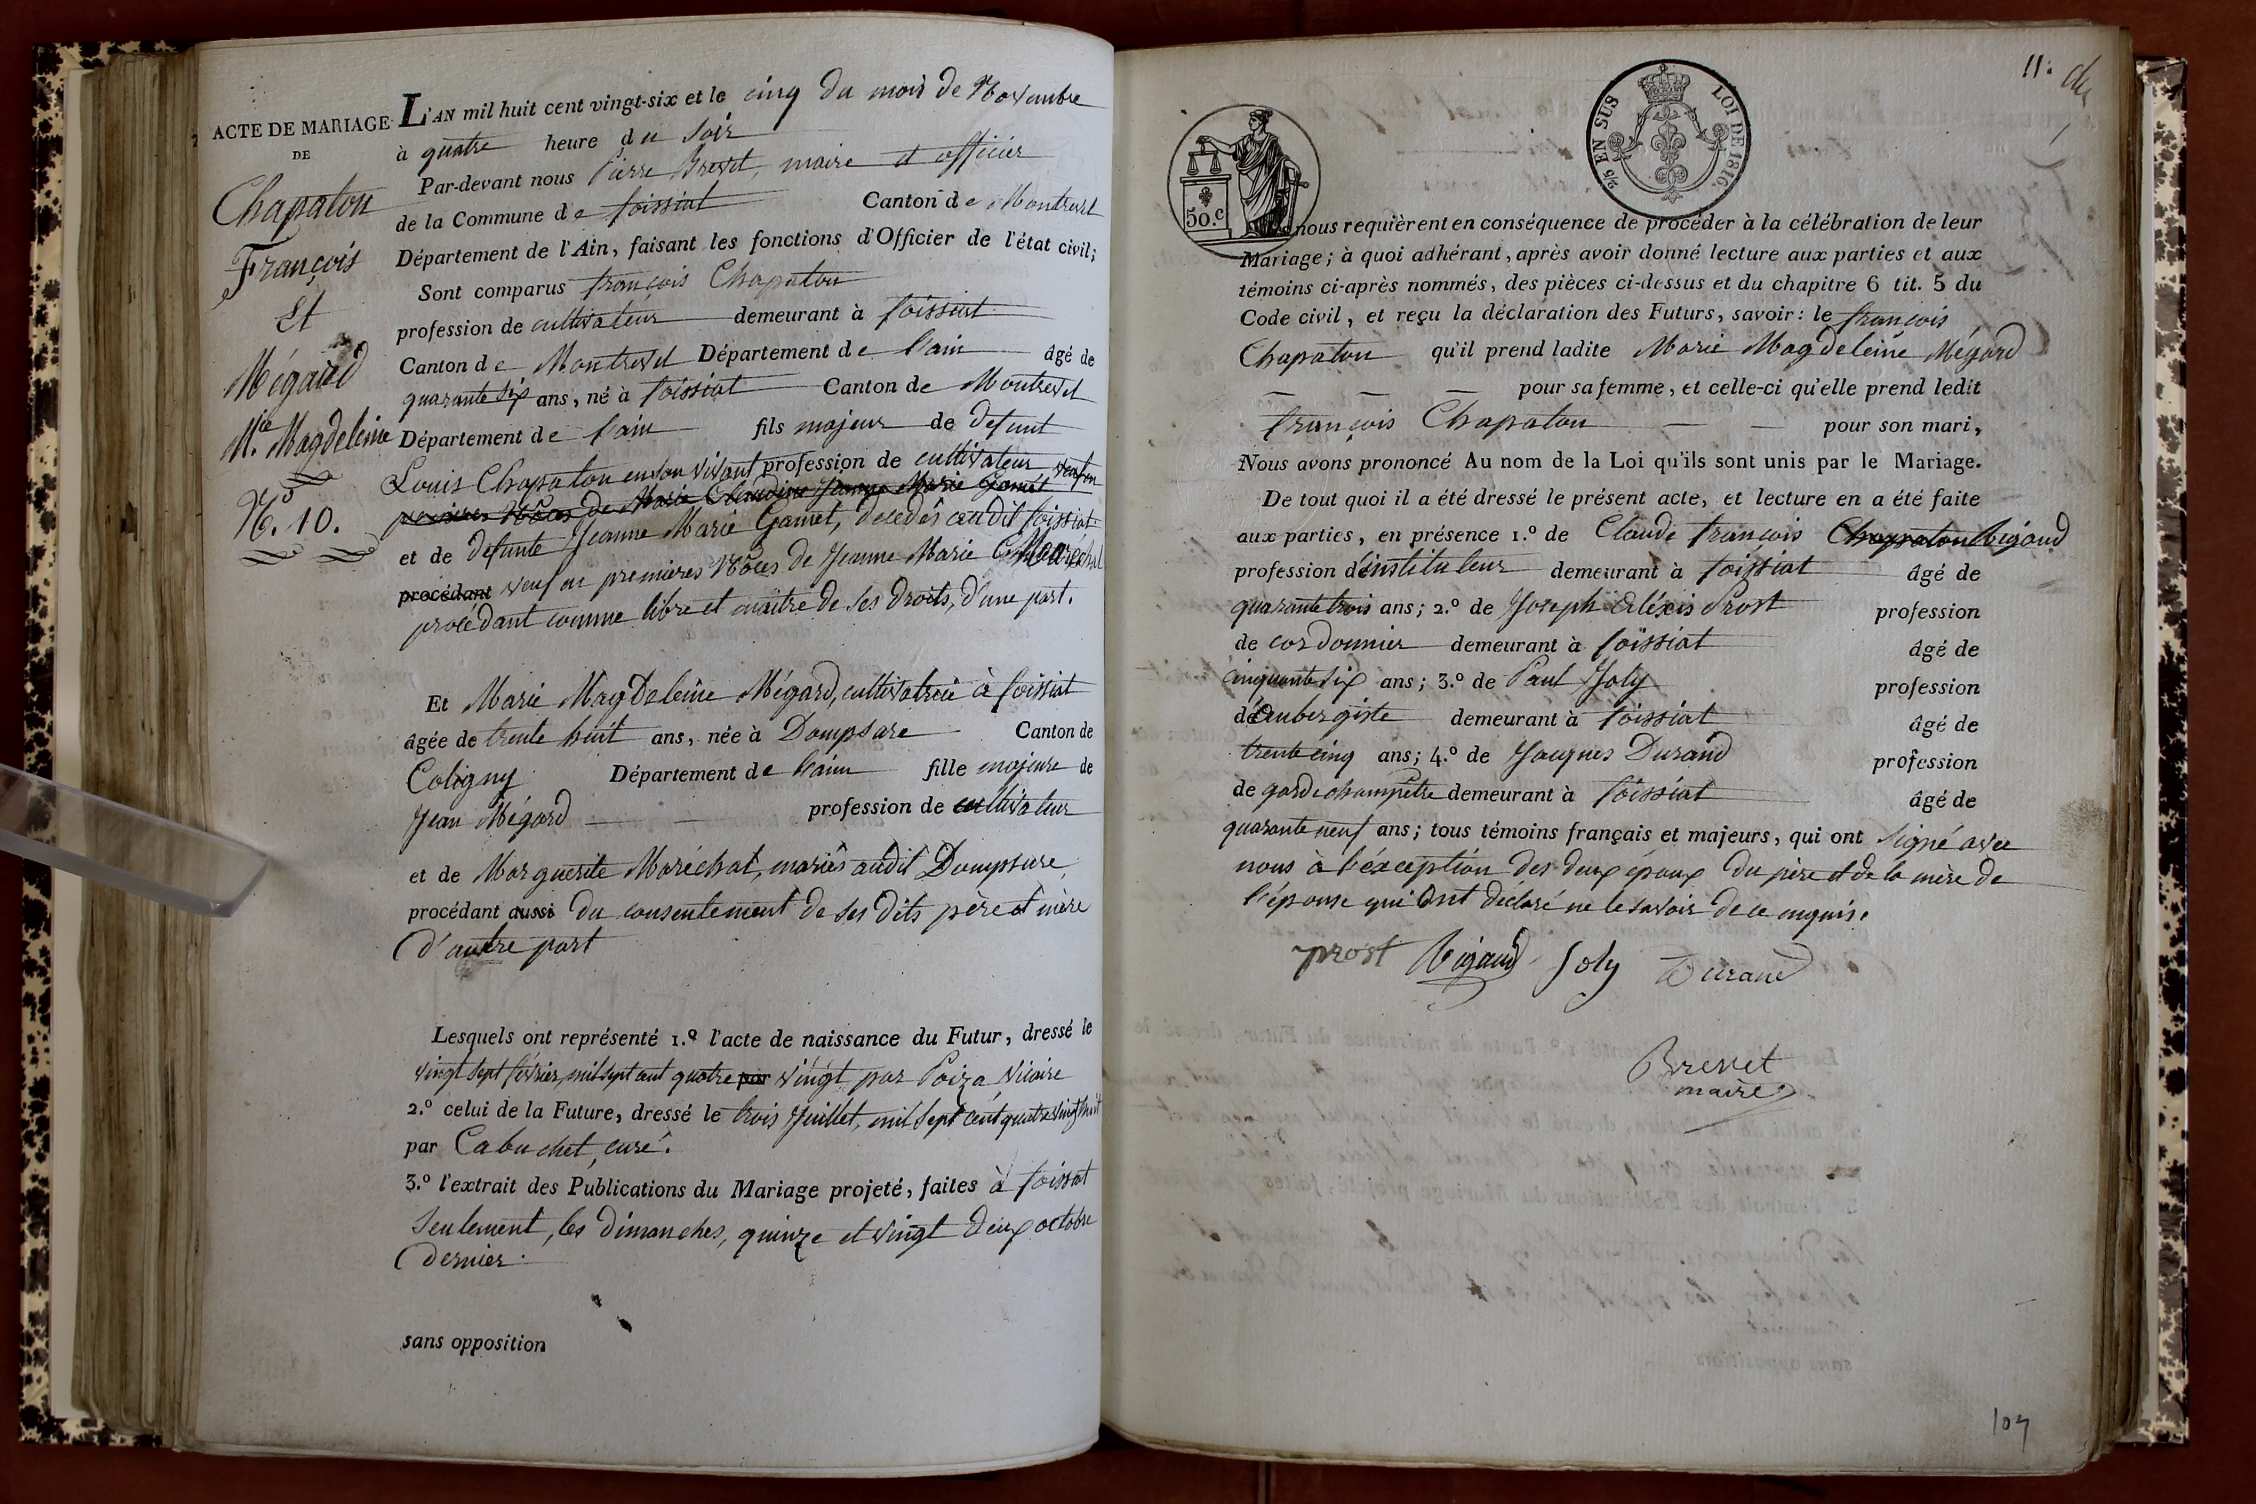 ACTE DE MARIAGE
DE
Chapaton
François
Et
Mégard
M.ie Magdeleine
N.o 10.
L'AN mil huit cent vingt-six et le cinq du mois de Novembre
à quatre heure du soir
Par-devant nous Pierre Brevet, maire et officier
de la Commune de foissiat Canton de Montrevel
Département de l'Ain, faisant les fonctions d'Officier de l'état civil;
Sont comparus françois Chapaton
profession de cultivateur demeurant à foissiat
Canton de Montrevel Département de l'ain âgé de
quarante six ans, né à foissiat Canton de Montrevel
Département de l'ain fils majeur de defunt
Louis Chapaton en son vivant profession de cultivateur veuf en
premières Nôces de Marie Claudine Jeanne Marie Gamet
et de defunte Jeanne Marie Gamet, decedés audit foissiat
procédant veuf en premières Nôces de Jeanne Marie Maréchal
procédant comme libre et maître de ses droits, d'une part.
Et Marie Magdeleine Mégard, cultivatrice à foissiat
âgée de trente huit ans, née à Dompsure Canton de
Coligny Département de l'ain fille majeure de
Jean Mégard profession de cultivateur
et de Marguerite Maréchal, mariés audit Dompsure,
procédant aussi du consentement de ses dits père et mère
d'autre part
Lesquels ont représenté 1.o l'acte de naissance du Futur, dressé le
vingt sept février, mil sept cent quatre par vingt par Poiza vicaire
2.o celui de la Future, dressé le trois Juillet, mil sept cent quatre vingt huit
par Cabuchet, curé.
3.o l'extrait des Publications du Mariage projeté, faites à foissiat
seulement, les dimanches, quinze et vingt deux octobre
dernier.
sans opposition
11.
50.c
2/5 EN SUS LOI DE 1816.
nous requièrent en conséquence de procéder à la célébration de leur
Mariage; à quoi adhérant, après avoir donné lecture aux parties et aux
témoins ci-après nommés, des pièces ci-dessus et du chapitre 6 tit. 5 du
Code civil, et reçu la déclaration des Futurs, savoir: le françois
Chapaton qu'il prend ladite Marie Magdeleine Mégard
pour sa femme, et celle-ci qu'elle prend ledit
françois Chapaton pour son mari,
Nous avons prononcé Au nom de la Loi qu'ils sont unis par le Mariage.
De tout quoi il a été dressé le présent acte, et lecture en a été faite
aux parties, en présence 1.o de Claude françois Chapaton Rigaud
profession d'instituteur demeurant à foissiat âgé de
quarante trois ans; 2.o de Joseph aléxis Prost profession
de cordonnier demeurant à foissiat âgé de
cinquante six ans; 3.o de Paul Joly profession
d'aubergiste demeurant à foissiat âgé de
trente cinq ans; 4.o de Jacques Durand profession
de garde champêtre demeurant à foissiat âgé de
quarante neuf ans; tous témoins français et majeurs, qui ont signé avec
nous à l'éxception des deux époux du père et de la mère de
l'épouse qui ont déclaré ne le savoir de ce enquis.
prost Rigaud Joly Durand
Brevet
maire
107